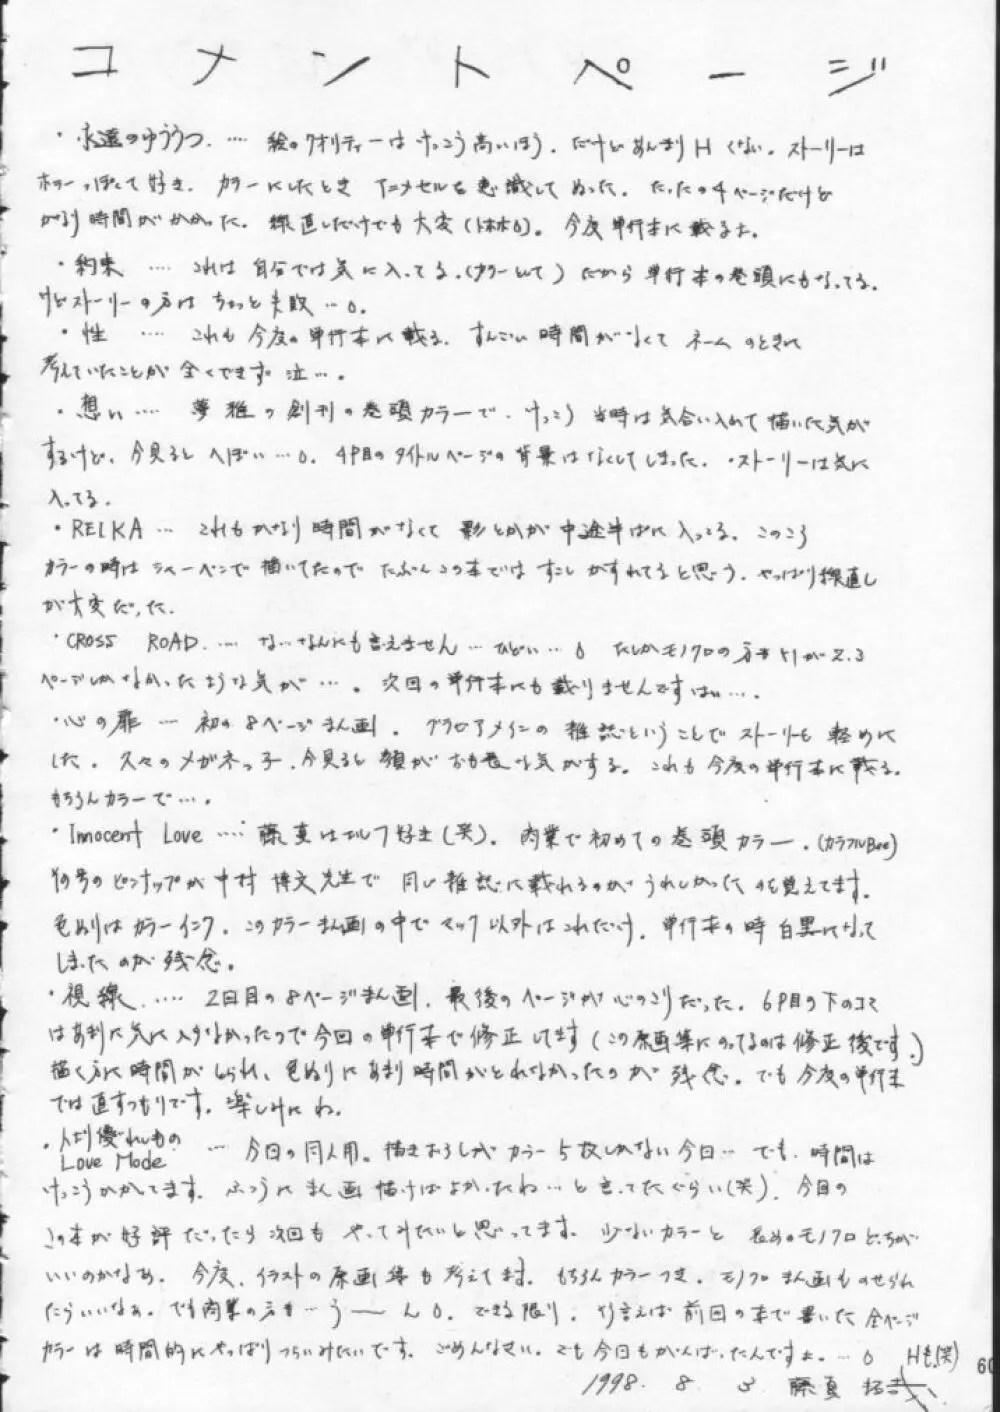 コメントページ
・永遠のゆううつ.‥‥ 絵のクオリティーはけっこう高いほう. だけどあんまりHくない. ストーリーは
ホラーっぽくて好き. カラーにしたとき アニメセルを意識してぬった. たったの4ページだけど
かなり時間がかかった. 線直しだけでも大変(トホホ). 今度単行本に載るよ.
・約束 ‥‥ これは自分では気に入ってる.(カラーとして) だから単行本の巻頭にもなってる.
けどストーリーの方はちょっと失敗…。
・性 ‥‥ これも今度の単行本に載る. すんごい時間がなくて ネームのときに
考えていたことが全くできず 泣….
・想い‥‥ 夢雅の創刊の巻頭カラーで. けっこう当時は気合い入れて描いた気が
するけど. 今見るとへぼい…。4P目のタイトルページの背景はなくしてしまった. ・ストーリーは気に
入ってる.
・REIKA … これもかなり時間がなくて 影とかが中途半ぱに入ってる. このころ
カラーの時はシャーペンで描いてたのでたぶんこの本ではすこしかすれてると思う. やっぱり線直し
が大変だった.
・CROSS ROAD.‥‥ な…なんにも言えません…ひどい…。 たしかモノクロの方も が2.3
ページしかなかったような気が…. 次回の単行本にも載りませんですはい….
・心の扉 … 初の8ページまん画. グラビアメインの雑誌ということでストーリーも軽めに
した. 久々のメガネっ子. 今見ると顔がおも長な気がする. これも今度の単行本に載る.
もちろんカラーで….
・Innocent Love ‥‥ 藤真はエルフ好き(笑). 商業で初めての巻頭カラー.(カラフルBee)
その号のピンナップが中村博文先生で 同じ雑誌に載れるのがうれしかったのを覚えてます.
色ぬりはカラーインク. このカラーまん画の中でマック以外はこれだけ. 単行本の時白黒になって
しまったのが残念.
・視線.‥‥ 2回目の8ページまん画. 最後のページが心のこりだった. 6P目の下のコマ
はあまり気に入らなかったので今回の単行本で修正してます(この原画集にのってるのは修正後です.)
描く方に時間がとられ、色ぬりにあまり時間がとれなかったのが残念. でも今度の単行本
では直すつもりです. 楽しみにね.
・人より優れしもの
Love Mode … 今回の同人用. 描きおろしがカラー5枚しかない今回… でも. 時間は
けっこうかかってます. ふつうにまん画描けばよかったね…と言ってたぐらい(笑). 今回の
この本が好評だったら次回もやってみたいと思ってます. 少ないカラーと 長めのモノクロどっちが
いいのかなぁ. 今度. イラストの原画集も考えてます. もちろんカラーつき. モノクロまん画ものせられ
たらいいなぁ. でも商業の方も…う――ん。できる限り. 言えば前回の本で書いた全ページ
カラーは時間的にやっぱりつらいみたいです. ごめんなさい. でも今回もがんばったんですよ.…。 Hも.(笑)
1998. 8. 3 藤真 拓哉
60